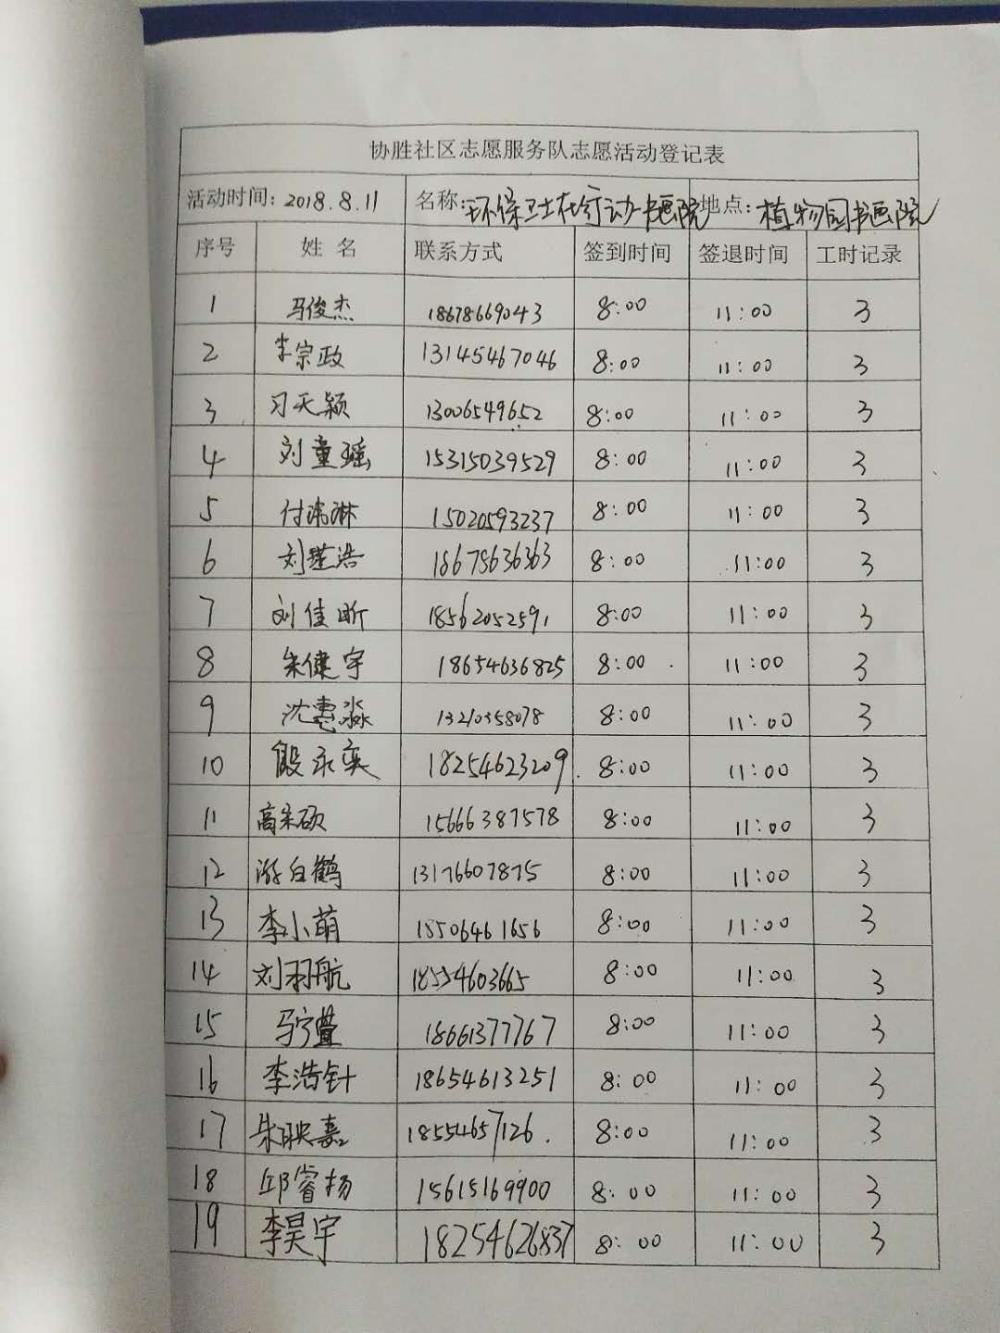 协胜社区志愿服务队志愿活动登记表
活动时间: 2018.8.11 名称: 环保卫士在行动书画院 地点: 植物园书画院
序号 姓名 联系方式 签到时间 签退时间 工时记录
1 马俊杰 18678669043 8:00 11:00 3
2 李宗政 13145467046 8:00 11:00 3
3 刁天颖 13006549652 8:00 11:00 3
4 刘童瑶 15315039529 8:00 11:00 3
5 付沛琳 15020593237 8:00 11:00 3
6 刘瑾浩 18678636363 8:00 11:00 3
7 刘佳昕 18562052591 8:00 11:00 3
8 朱健宇 18654636825 8:00 11:00 3
9 沈惠淼 13210358078 8:00 11:00 3
10 殷永奕 18254623209 8:00 11:00 3
11 高 硕 15666387578 8:00 11:00 3
12 游白鹤 13176607875 8:00 11:00 3
13 李小萌 18506461656 8:00 11:00 3
14 刘羽航 18554603665 8:00 11:00 3
15 马宁萱 18661377767 8:00 11:00 3
16 李浩针 18654613251 8:00 11:00 3
17 朱映嘉 18554657126. 8:00 11:00 3
18 邱睿扬 15615169900 8:00 11:00 3
19 李昊宇 18254626837 8:00 11:00 3